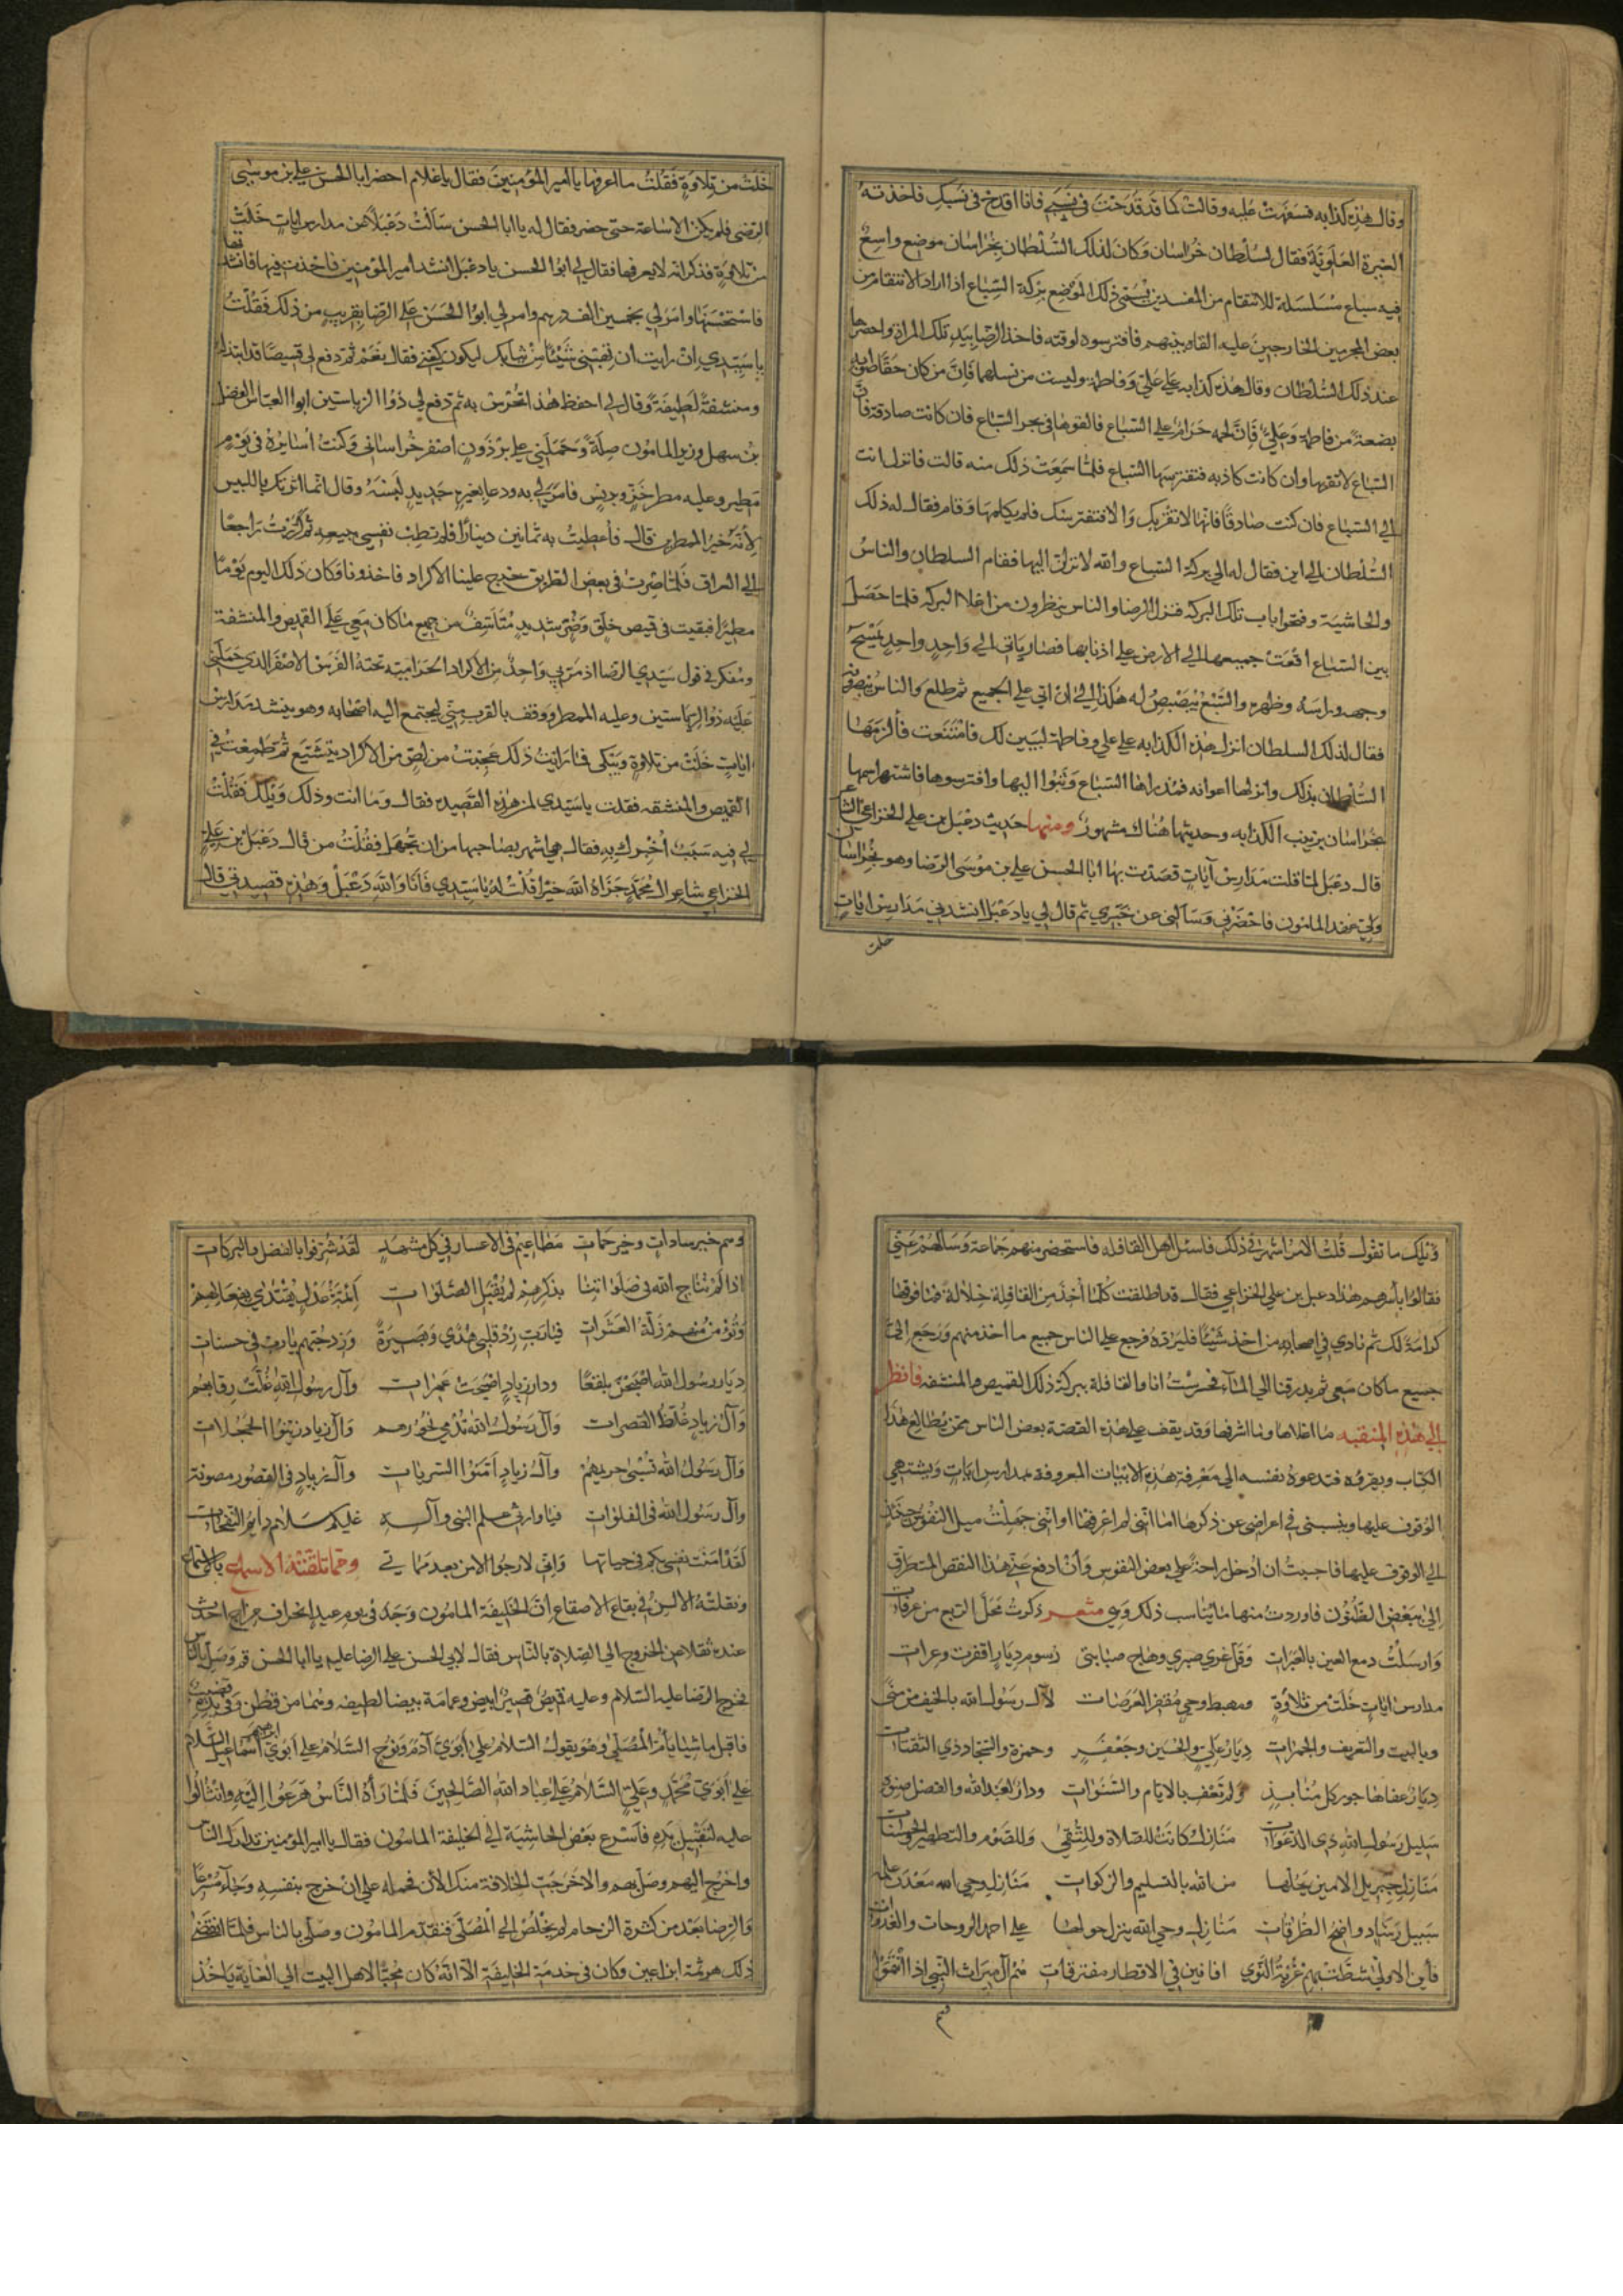 وقال هذه كذابة فسفهت عليه وقالت كما قد قدحت في نسبي فانا اقدح في نسبك فاخذته
الغيرة العلوية فقال لسلطان خراسان وكان لذلك السلطان بخراسان موضع واسع
فيه سباع مسلسلة للانتقام من المفسدين يسمى ذلك الموضع بركة السباع اذا اراد الانتقام من
بعض المجرمين الخارجين عليه القاه بينهم فافترسوه لوقته فاخذ الرضا بيد تلك المراة واحضرها
عند ذلك السلطان وقال هذه كذابه على علي وفاطمة وليست من نسلهما فان من كان حقا
بضعة من فاطمة وعلي فان لحمه حرام على السباع فالقوها في السباع فان كانت صادقة فان
السباع لا تقربها وان كانت كاذبه فتفترسها السباع فلما سمعت ذلك منه قالت فانزل انت
الي السباع فان كنت صادقا فانها لا تقربك والا فتفترسك فلم يكلمها وقام فقال له ذلك
السلطان الى اين فقال له الى بركة السباع والله لانزلن اليها فقام السلطان والناس
والحاشية وفتحوا باب تلك البركه فنزل الرضا والناس ينظرون من اعلا البركه فلما حصل
بين السباع اقعت جميعها الى الارض على اذنابها فصار ياتي الي واحد واحد يمسح
وجهه وراسه وظهره والسبع يبصبص له هكذا الى ان اتى على الجميع ثم طلع والناس يبصرونه
فقال لذلك السلطان انزل هذه الكذابه على علي وفاطمة ليبين لك فامتنعت فالزمها
السلطان بذلك وانزلها اعوانه فمذ راها السباع وثبوا اليها وافترسوها فاشتهر اسمها
بخراسان بزينب الكذابه وحديثها هناك مشهور ومنها حديث دعبل بن علي الخزاعي
قال دعبل لما قلت مدارس آيات قصدت بها ابا الحسن علي بن موسى الرضا وهو بخراسان
ولي عهد المامون فاحضرني وسالني عن خبري ثم قال لي يا دعبل انشدني مدارس ايات
خلت
خلت من تلاوة فقلت ما اعرفها يا امير المؤمنين فقال يا غلام احضر ابا الحسن علي بن موسى
الرضى فلم يكن الا ساعة حتى حضر فقال له يا ابا الحسن سالت دعبلا عن مدارس ايات خلت
من تلاوة فذكر انه لا يعرفها فقال لي ابو الحسن يا دعبل انشد امير المؤمنين فاخذت فيها فانشدتها
فاستحسنها وامر لي بخمسين الف درهم وامر لي ابو الحسن علي الرضا بقريب من ذلك فقلت
يا سيدي ان رايت ان تهبني شيئا من ثيابك ليكون كفني فقال نعم ثم دفع لي قميصا قد ابتذله
ومنشفة لطيفة وقال لي احفظ هذا تحترس به ثم دفع لي ذو الرياستين ابو العباس الفضل
بن سهل وزير المامون صلة وحملني على برذون اصفر خراساني وكنت اسايره في يوم
مطير وعليه ممطر خز وبرنس فامر لي به ودعا بغيره جديد لبسه وقال انما اثرتك باللبيس
لانه خير الممطرين قال فاعطيت به ثمانين دينارا فلم تطب نفسي ببيعه ثم كررت راجعا
الى العراق فلما صرت في بعض الطريق خرج علينا الاكراد فاخذونا وكان ذلك اليوم يوما
مطيرا فبقيت في قميص خلق وضر شديد متاسف من جميع ما كان معي على القميص والمنشفة
ومفكر في قول سيدي الرضا اذ مر بي واحد من الاكراد الحرامية تحته الفرس الاصفر الذي حملني
عليه ذو الرياستين وعليه الممطر ووقف بالقرب مني ليجتمع اليه اصحابه وهو ينشد مدارس
ايات خلت من تلاوة ويبكي فلما رايت ذلك عجبت من لص من الاكراد يتشيع ثم طمعت في
القميص والمنشفه فقلت يا سيدي لمن هذه القصيده فقال وما انت وذلك ويلك فقلت
لي فيه سبب اخبرك به فقال هي اشهر بصاحبها من ان تجهل فقلت من قال دعبل بن علي
الخزاعي شاعر ال محمد جزاه الله خيرا قلت له يا سيدي فانا والله دعبل وهذه قصيدتي قال
ويلك ما تقول قلت الامر اشهر في ذلك فاسئل اهل القافله فاستحضر منهم جماعة وسالهم عني
فقالوا باسرهم هذا دعبل بن علي الخزاعي فقال قد اطلقت كلما اخذ من القافلة خلالة فما فوقها
كرامة لك ثم نادي في اصحابه من اخذ شيئا فليرده فرجع على الناس جميع ما اخذ منهم ورجع الي
جميع ما كان معي ثم بدرقنا الي المنآء فحرست انا والقافلة ببركة ذلك القميص والمنشفه فانظر
الي هذه المنقبه ما اعلاها وما اشرفها وقد يقف على هذه القصة بعض الناس ممن يطالع هذا
الكتاب ويقرؤه فتدعوه نفسه الى معرفة هذه الابيات المعروفة بمدارس ايات ويشتهي
الوقوف عليها وينسبني في اعراضي عن ذكرها اما انني لم اعرفها او انني جهلت ميل النفوس حينئذ
الي الوقوف عليها فاحببت ان ادخل راحة على بعض النفوس وان ادفع عني هذا النقص المتطرق
الى ببعض الظنون فاوردت منها ما يناسب ذلك وهي شعر ذكرت محل الربع من عرفات
وارسلت دمع العين بالعبرات وقل عري صبري وهاج صبابتي رسوم ديار اقفرت وعرات
مدارس ايات خلت من تلاوة ومهبط وحي مقفر العرصات لآل رسول الله بالخيف من منى
وبالبيت والتعريف والجمرات ديار علي والحسين وجعفر وحمزة والسجاد ذي الثفنات
ديار عفاها جور كل منابذ ولم تعف بالايام والسنوات ودار لعبد الله والفضل صنوه
سليل رسول الله ذي الدعوات منازل كانت للصلاة وللتقى وللصوم والتطهير والحسنات
منازل جبريل الامين يحلها من الله بالتسليم والزكوات منازل وحي الله معدن علمه
سبيل رشاد واضح الطرقات منازل وحي الله ينزل حولها على احمد الروحات والغدوات
فاين الاولى شطت بهم غربة النوي افانين في الاقطار مفترقات هم آل ميراث النبي اذا انتموا
وهم
وهم خير سادات وخير حمات مطاعيم في الاعسار في كل مشهد لقد شرفوا بالفضل والبركات
اذا لم نناج الله في صلواتنا بذكرهم لم يقبل الصلوات ائمة عدل يقتدي بفعالهم
وتؤمن منهم زلة العثرات فيا رب زد قلبي هدي وبصيرة وزد حبهم يا رب في حسنات
ديار رسول الله اصبحن بلقعا ودار زياد اضحيت عمرات وآل رسول الله غلت رقابهم
وآل زياد غلظ القصرات وآل رسول الله تدمي نحورهم وآل زياد زينوا الحجلات
وآل رسول الله تسبى حريمهم وآل زياد آمنوا السربات وآل زياد في القصور مصونة
وآل رسول الله في الفلوات فيا وارثي علم النبي وآله عليكم سلام دايم النفحات
لقد امنت نفسي بكم في حياتها واني لارجو الامن بعد مماتي ومما تلقته الاسماع بالاستماع
ونقلته الالسن في بقاع الاصقاع ان الخليفة المامون وجد في يوم عيد انحراف مزاج احدث
عنده ثقلا عن الخروج الى الصلاة بالناس فقال لابي الحسن علي الرضا عليه يا ابا الحسن قم وصل بالناس
فخرج الرضا عليه السلام وعليه قميص قصير ابيض وعمامة بيضا لطيفه وهما من قطن وفي يده قضيب
فاقبل ماشيا يام المصلى وهو يقول السلام على ابوي آدم ونوح السلام على ابوي ابرهيم اسماعيل السلام
على ابوي محمد وعلي السلام على عباد الله الصالحين فلما رأه الناس هرعوا اليه وانثالوا
عليه لتقبيل يده فاسرع بعض الحاشية الى الخليفة المامون فقال يا امير المؤمنين تدارك الناس
واخرج اليهم وصل بهم والا خرجت الخلافة منك الأن فحمله على ان خرج بنفسه وجاء مسرعا
والرضا بعد من كثرة الزحام لم يخلص الي المصلى فتقدم المامون وصلى بالناس فلما انقضى
ذلك هرثمة ابن اعين وكان في خدمة الخليفة الا انه كان محبا لاهل البيت الي الغاية ياخذ